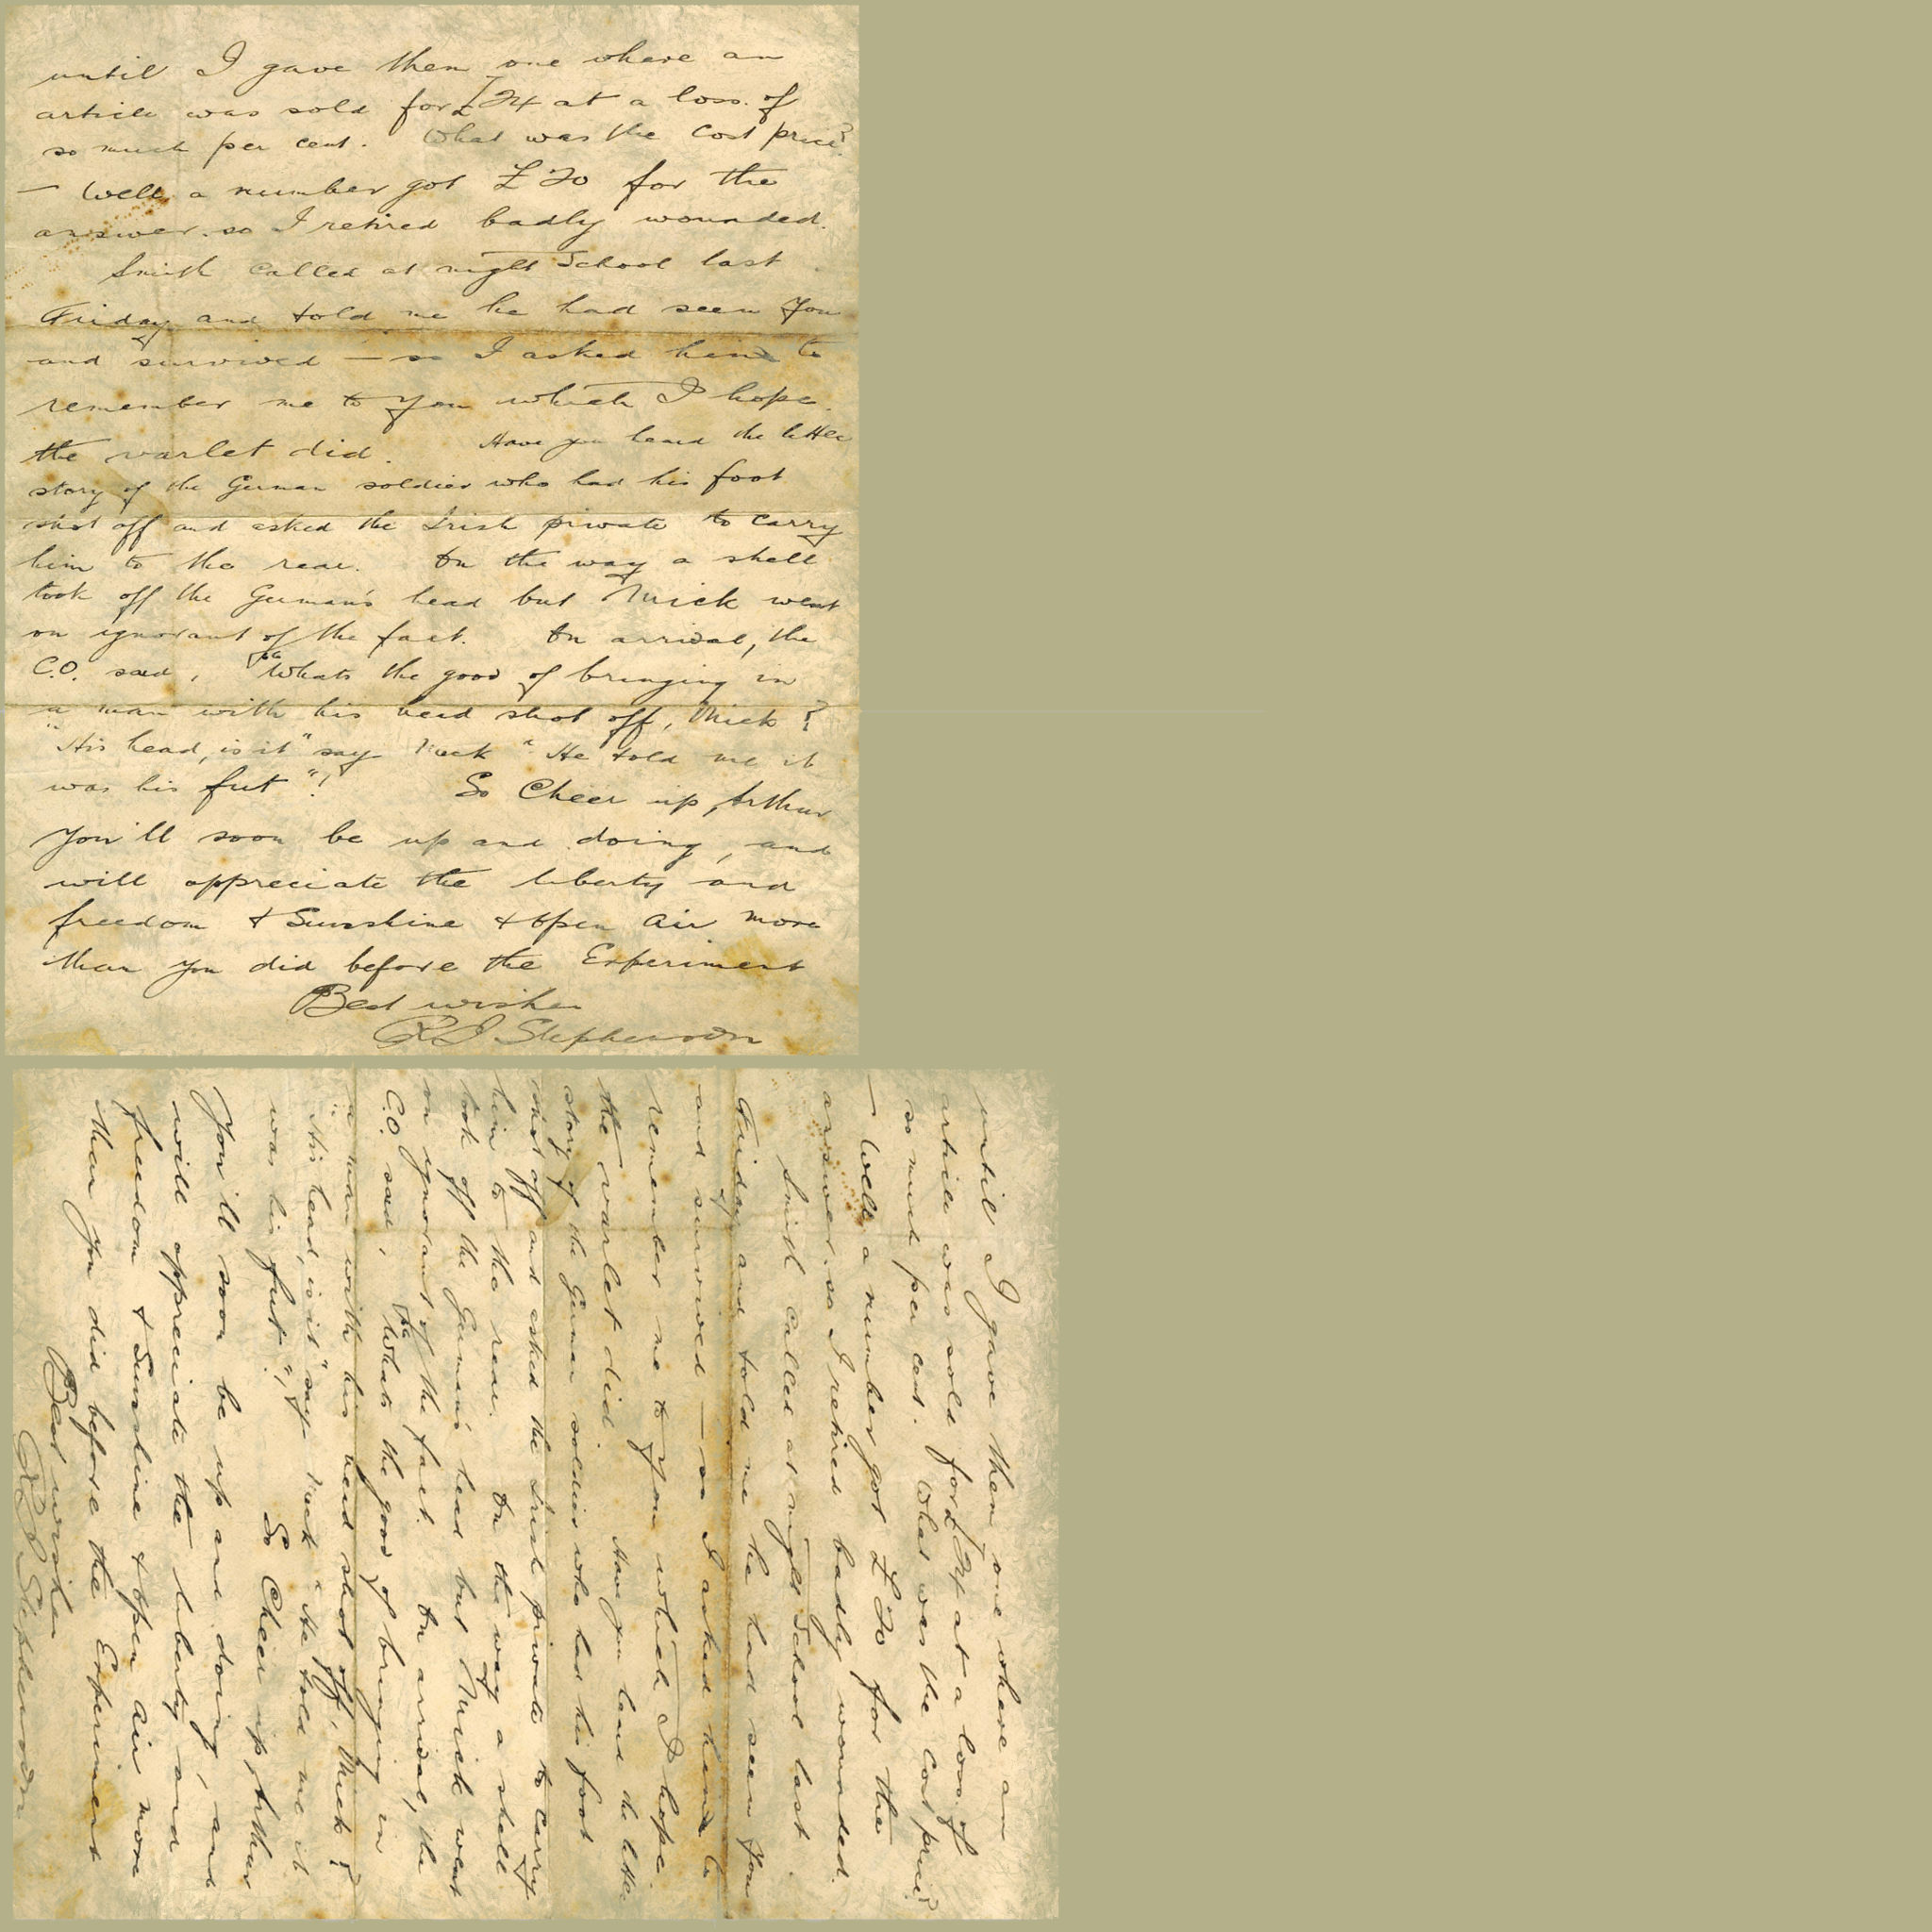 until I gave them one where an
article was sold for £24 at a loss of
so much per cent. What was the cost price?
— Well, a number got £20 for the
answer. so I retired badly wounded.
Smith called at night School last
Friday and told me he had seen you
and survived — so I asked him to
remember me to you which I hope
the varlet did. Have you heard the
story of the German soldier who had his foot
shot off and asked the Irish private to carry
him to the rear. On the way a shell
took off the German's head but Mick went
on ignorant of the fact. On arrival, the
C.O. said, "Whats the good of bringing in
a man with his head shot off, Mick?
"His head, is it" say Mick "He told me it
was his fut"! So Cheer up, Arthur
You'll soon be up and doing, and
will appreciate the liberty and
freedom & Sunshine & open air more
than you did before the Experiment
Best wishes
R J Stephenson
until I gave them one where an
article was sold for £24 at a loss of
so much per cent. What was the cost price?
— Well, a number got £20 for the
answer. so I retired badly wounded.
Smith called at night School last
Friday and told me he had seen you
and survived — so I asked him to
remember me to you which I hope
the varlet did. Have you heard the
story of the German soldier who had his foot
shot off and asked the Irish private to carry
him to the rear. On the way a shell
took off the German's head but Mick went
on ignorant of the fact. On arrival, the
C.O. said, "Whats the good of bringing in
a man with his head shot off, Mick?
"His head, is it" say Mick "He told me it
was his fut"! So Cheer up, Arthur
You'll soon be up and doing, and
will appreciate the liberty and
freedom & Sunshine & open air more
than you did before the Experiment
Best wishes
R J Stephenson